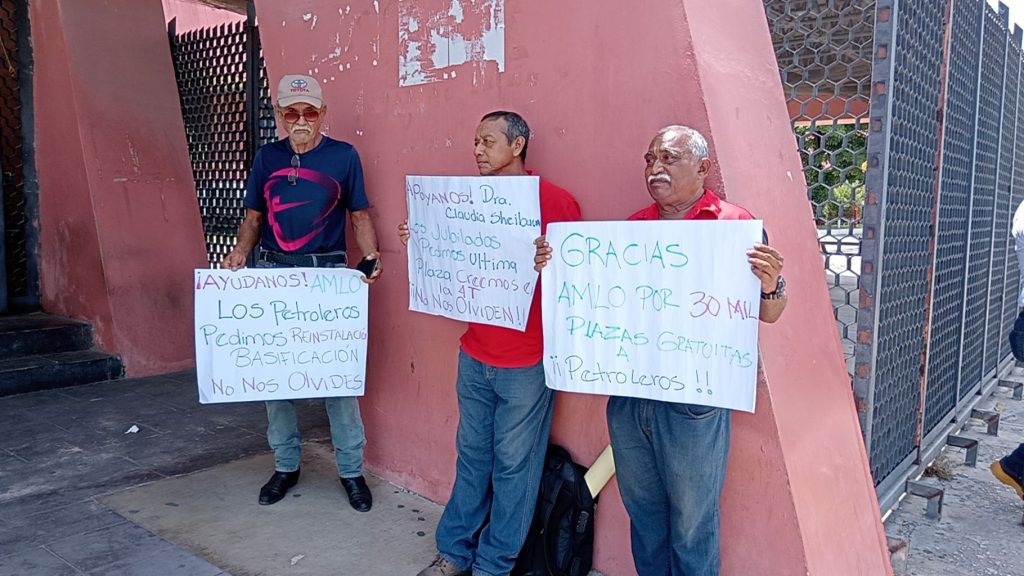 TOYOTA
¡AYUDANOS! AMLO
LOS PETROLEROS
PEDIMOS REINSTALACIÓ
BASIFICACIÓN
NO NOS OLVIDES
APOYANOS! Dra.
Claudia Sheibaum
Jubilados
Pedimos Ultima
Plaza Creemos e
la 4T
¡No Nos OLVIDEN!!
GRACIAS
AMLO POR 30 MIL
PLAZAS GRATUITAS
A
¡¡PETROLEROS!!